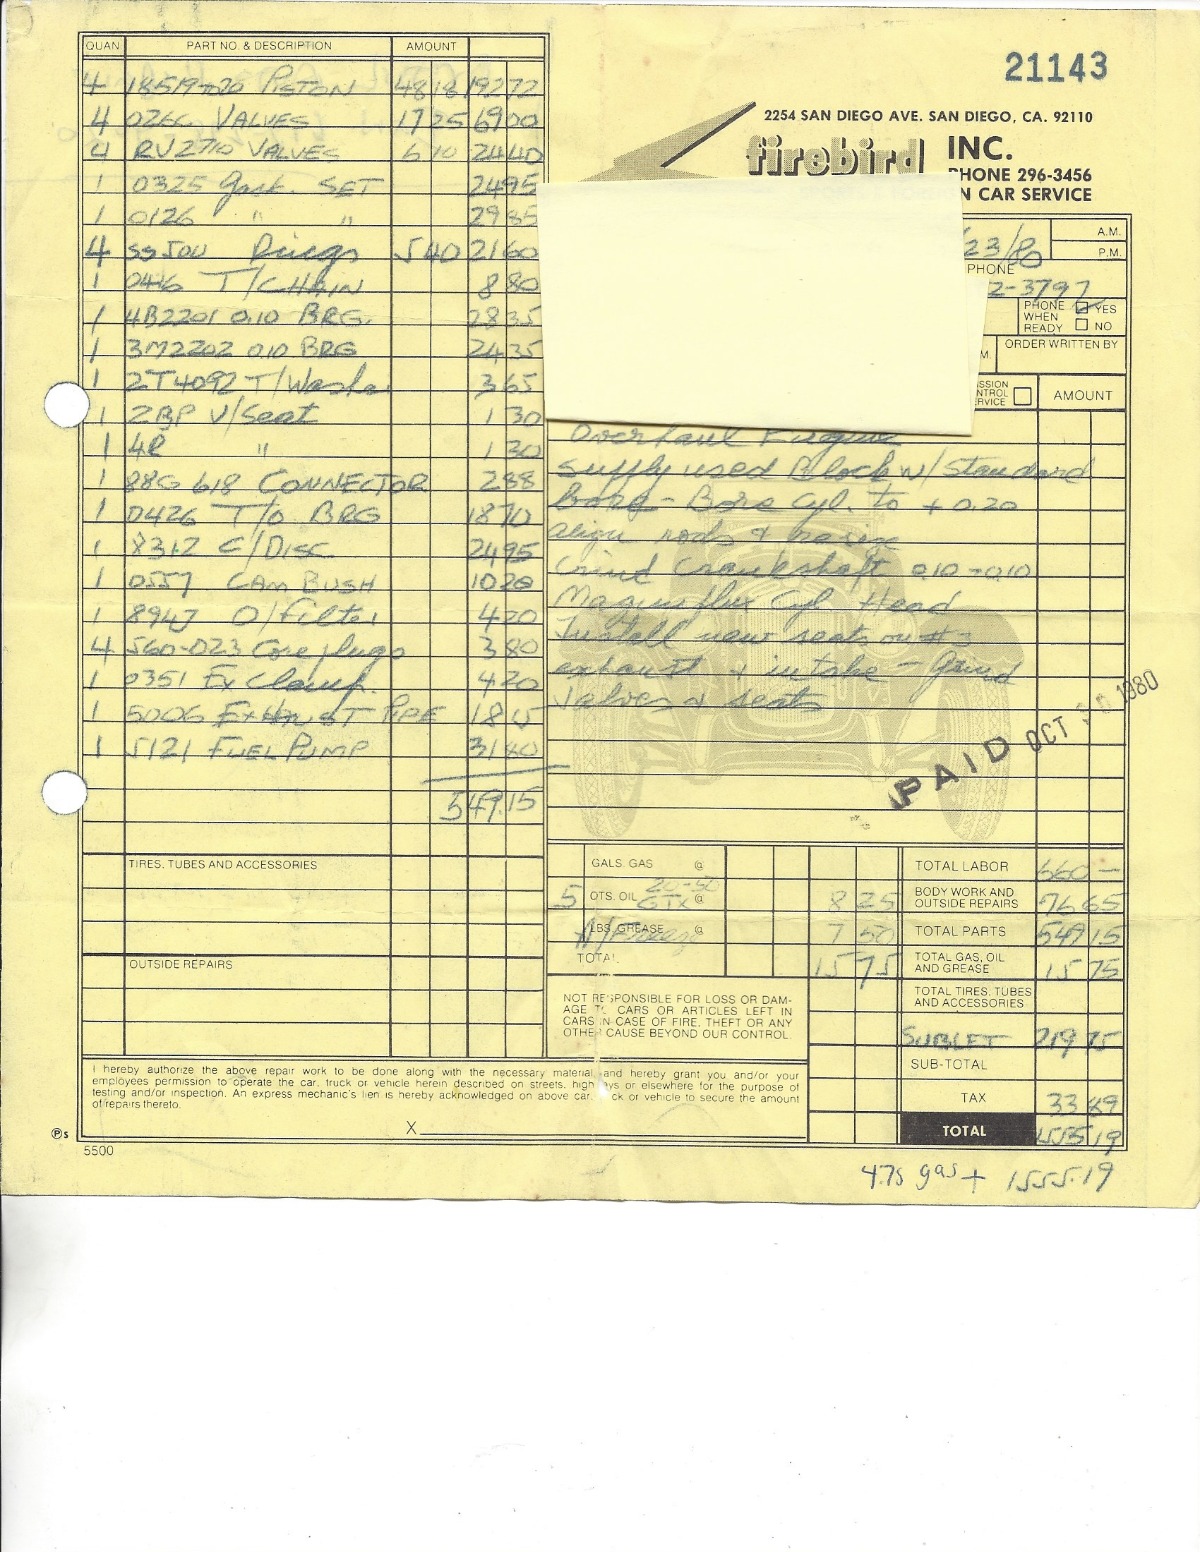 QUAN PART NO. & DESCRIPTION AMOUNT
4 18519+20 PISTON 48 18 192 72
4 VALVES 17 25 69 00
4 RV2710 VALVES 6 10 24 40
1 0325 Gask. SET 24 95
1 0126 " " 29 85
4 Rings 5 40 21 60
1 T/CHAIN 8 80
1 4B2201 010 BRG. 28 35
1 3M2202 010 BRG 24 35
1 2T4092 T/Washe 3 65
1 2BP V/Seat 1 30
1 4R " 1 30
1 88G 618 CONNECTOR 2 88
1 0426 T/O BRG 18 70
1 8312 C/DISC 24 95
1 0557 CAM BUSH 10 20
1 8947 O/Filter 4 20
4 560-023 Core plugs 3 80
1 0351 Ex Clamp. 4 20
1 5006 EXHAUST PIPE 18
1 5121 FUEL PUMP 31 40
549.15
TIRES, TUBES AND ACCESSORIES
OUTSIDE REPAIRS
21143
2254 SAN DIEGO AVE. SAN DIEGO, CA. 92110
firebird INC.
PHONE 296-3456
N CAR SERVICE
23/80 A.M.
P.M.
PHONE
2-3797
PHONE WHEN READY YES NO
M. ORDER WRITTEN BY
SSION NTROL RVICE AMOUNT
Overhaul Engine
Supply used Block w/ Standard
bore - Bore Cyl. to + 0.20
align rods &
Grind Crankshaft 010-010
Magnaflux Cyl Head
Install new seats on #3
exhaust & intake - Grind
valves & seats
PAID OCT 30 1980
GALS. GAS @
5 QTS. OIL 20-50 GTX @ 8 25
LBS. GREASE @
A/Freeze 7 50
TOTAL 15 75
NOT RESPONSIBLE FOR LOSS OR DAM-
AGE TO CARS OR ARTICLES LEFT IN
CARS IN CASE OF FIRE, THEFT OR ANY
OTHER CAUSE BEYOND OUR CONTROL.
TOTAL LABOR 660 —
BODY WORK AND OUTSIDE REPAIRS 76 65
TOTAL PARTS 549 15
TOTAL GAS, OIL AND GREASE 15 75
TOTAL TIRES, TUBES AND ACCESSORIES
SUBLET 219 75
SUB-TOTAL
TAX 33 89
TOTAL 1555 19
I hereby authorize the above repair work to be done along with the necessary material, and hereby grant you and/or your
employees permission to operate the car, truck or vehicle herein described on streets, high ys or elsewhere for the purpose of
testing and/or inspection. An express mechanic's lien is hereby acknowledged on above car, ck or vehicle to secure the amount
of repairs thereto.
X
5500
4.75 gas + 1555.19